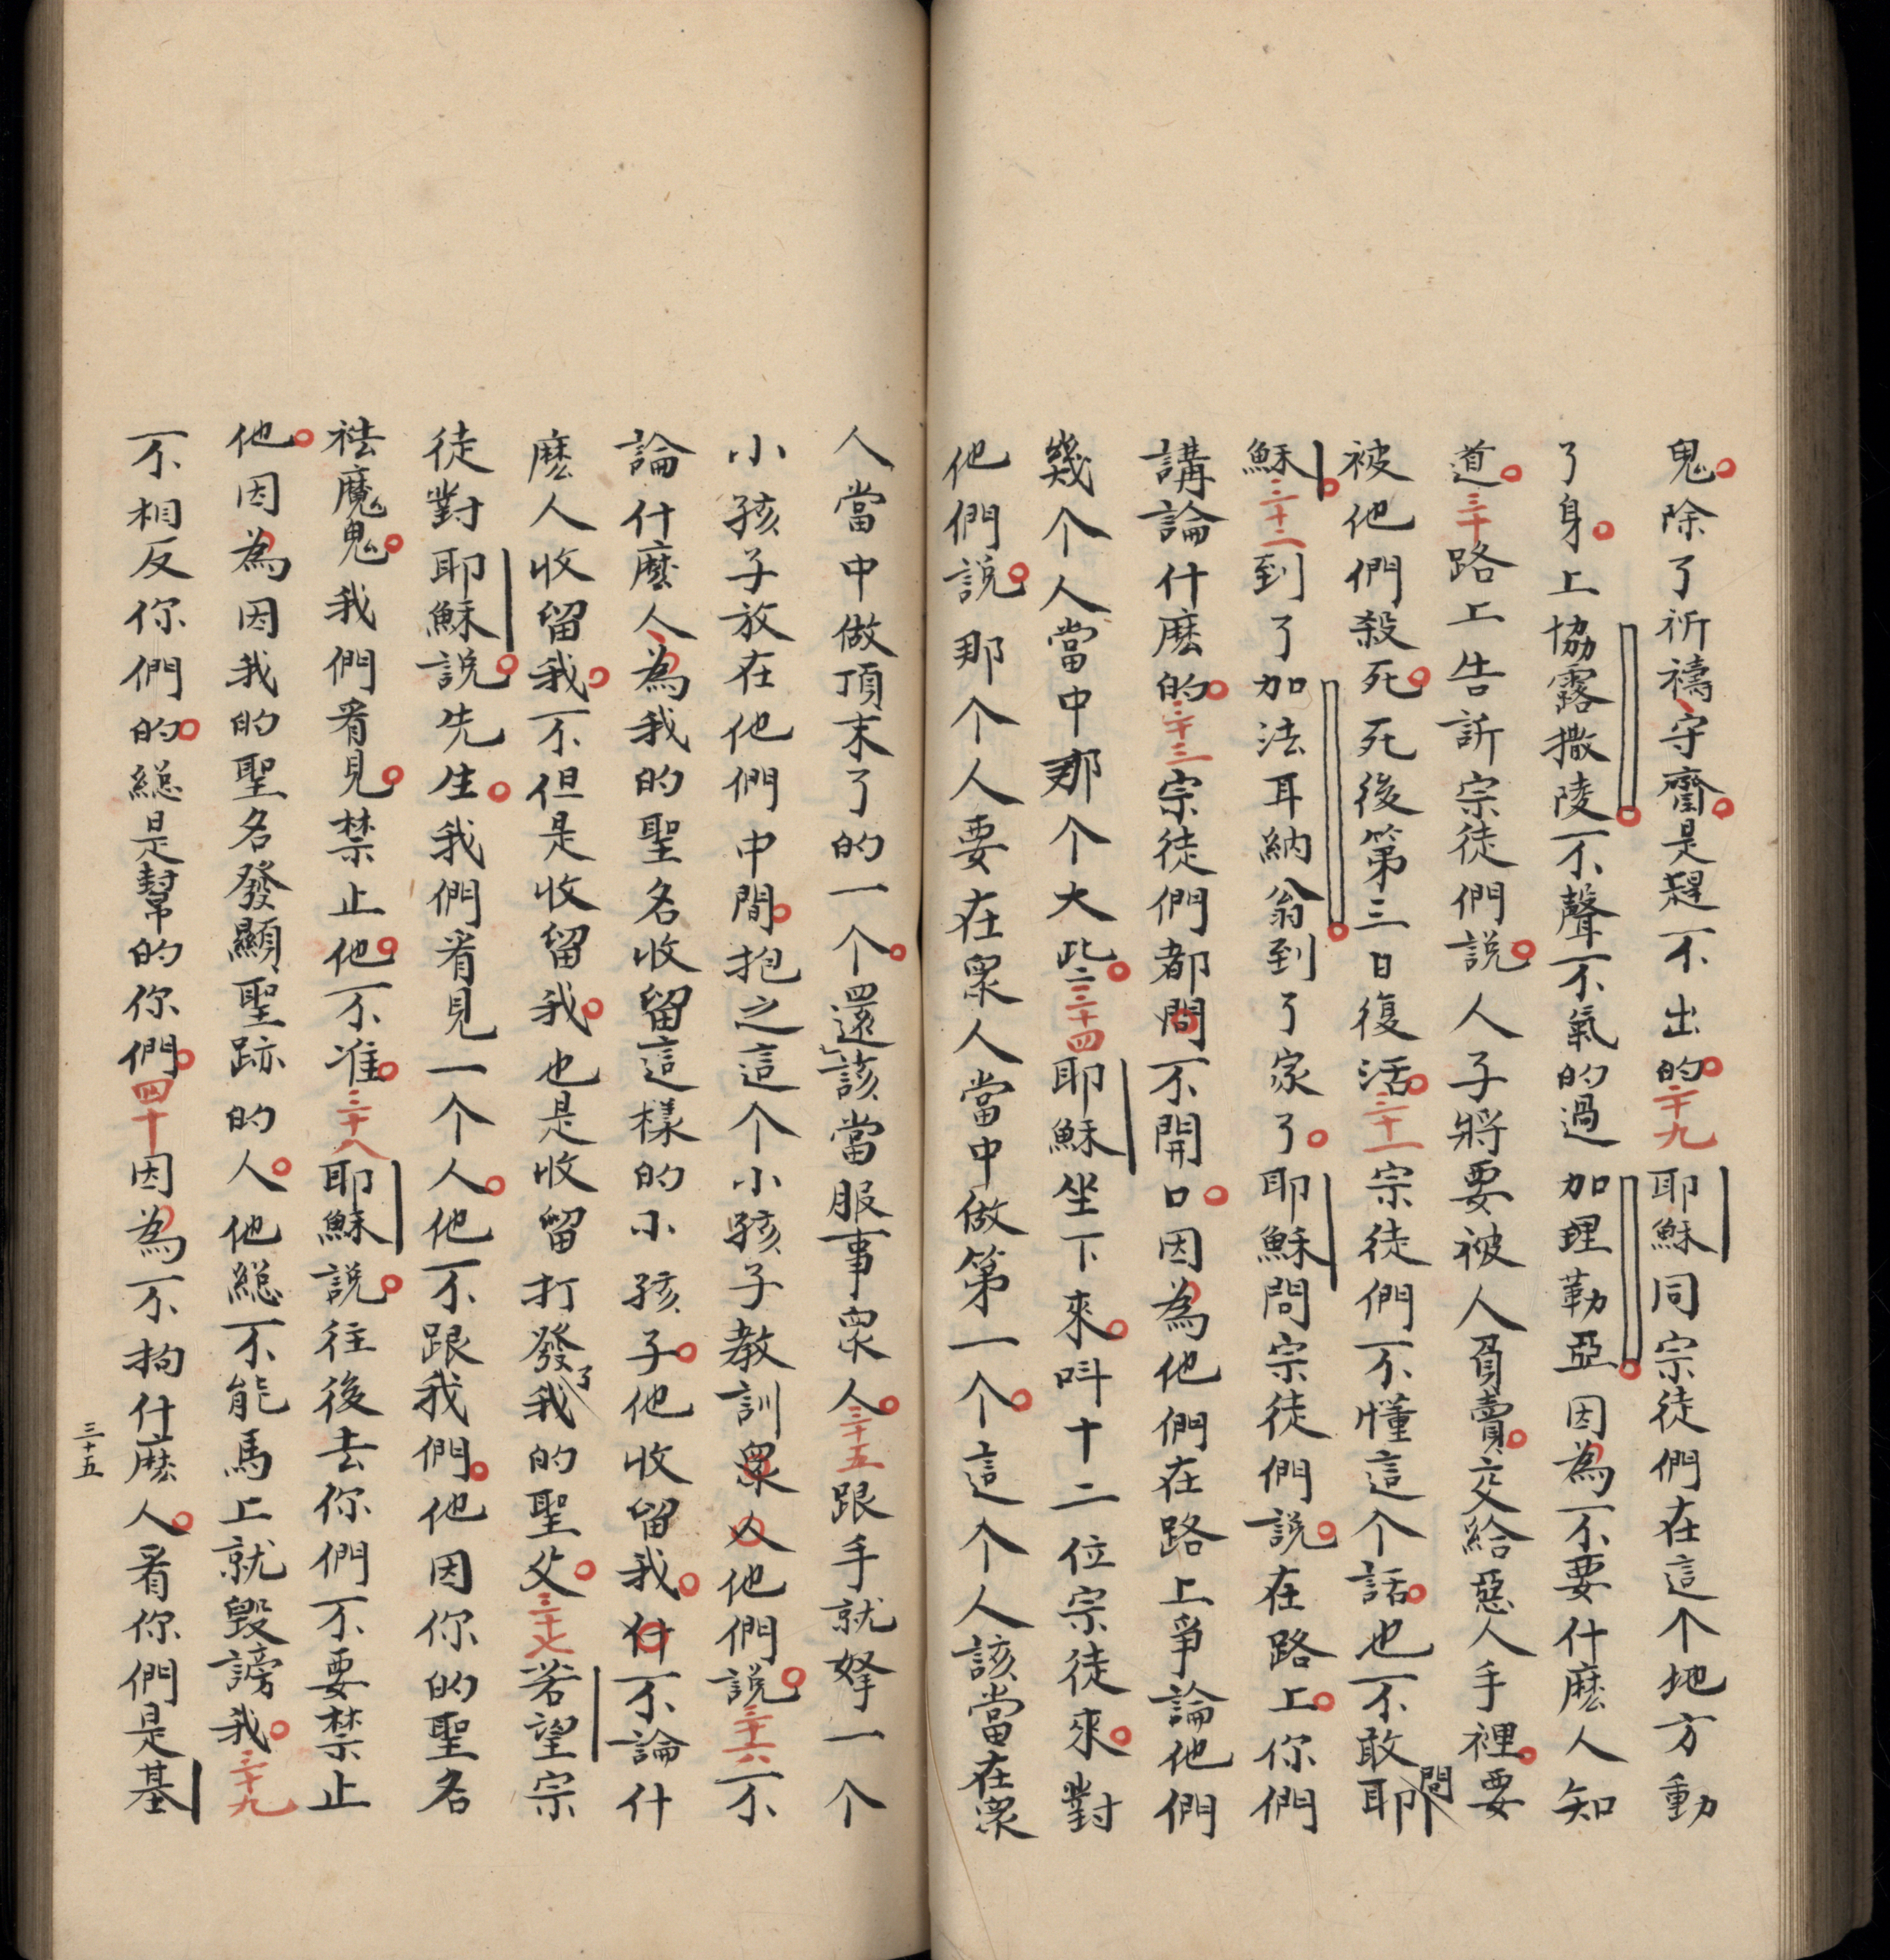 鬼。除了祈禱、守齋。是趕不出的。二十九耶穌同宗徒們在這个地方動
了身。上協露撒陵。不聲不氣的過加理勒亞。因為不要什麽人知
道。三十路上告訴宗徒們說。人子將要被人負賣。交給惡人手裡。要
被他們殺死。死後第三日復活。三十一宗徒們不懂這个話。也不敢問耶
穌。三十二到了加法耳納翁。到了家了。耶穌問宗徒們說。在路上。你們
講論什麽的。三十三宗徒們都問不開口。因為他們在路上爭論他們
幾个人當中那个大些。三十四耶穌坐下來。呌十二位宗徒來。對
他們說。那个人要在衆人當中做第一个。這个人該當在衆
人當中做頂末了的一个。還該當服事衆人。三十五跟手就拏一个
小孩子放在他們中間。抱之這个小孩子教訓衆人他們說。三十六不
論什麽人、為我的聖名收留這樣的小孩子。他收留我。什不論什
麽人收留我。不但是收留我。也是收留打發了我的聖父。三十七若望宗
徒對耶穌說。先生。我們看見一个人。他不跟我們。他因你的聖名
祛魔鬼。我們看見。禁止他。不准。三十八耶穌說。往後去你們不要禁止
他。因為因我的聖名發顯聖跡的人。他総不能馬上就毀謗我。三十九
不相反你們的。総是幫的你們。四十因為不拘什麽人。看你們是基
三十五